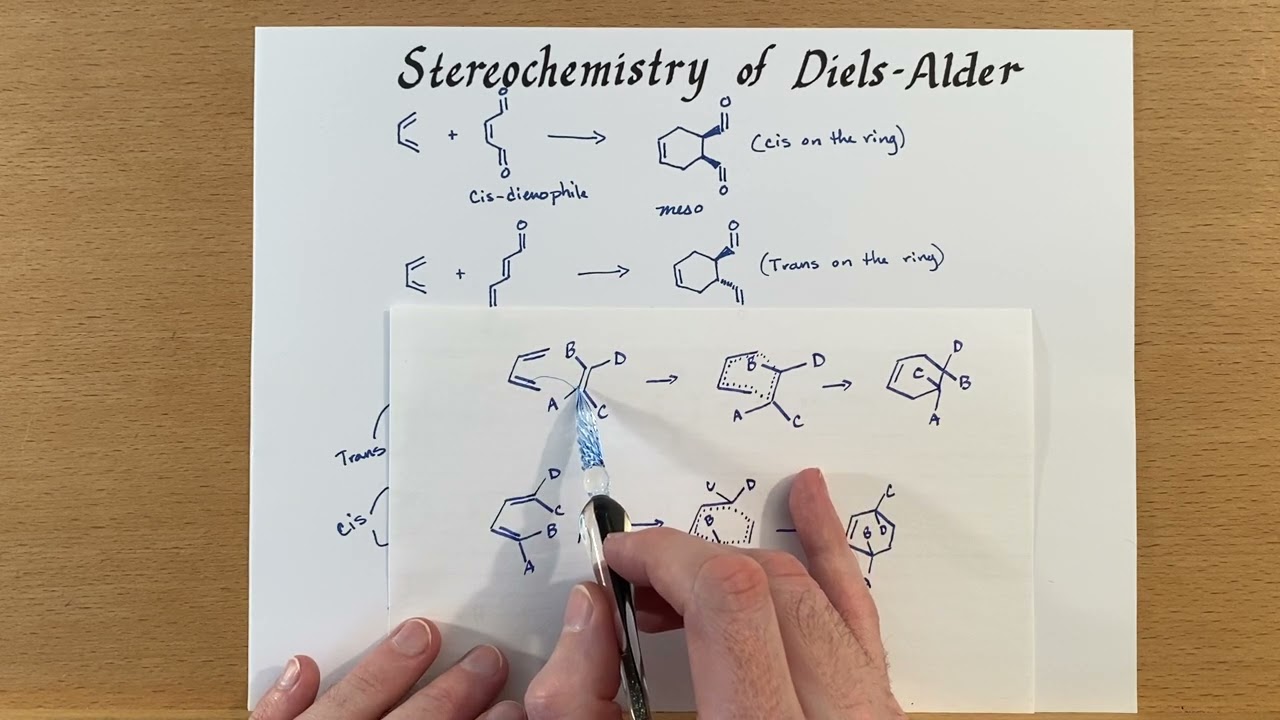 Stereochemistry of Diels-Alder
O
O
+
O
O
(cis on the ring)
cis-dienophile
meso
O
O
+
(Trans on the ring)
B
D
A
C
B
D
A
C
D
C
B
A
Trans
cis
D
C
B
A
D
B
C
B
D